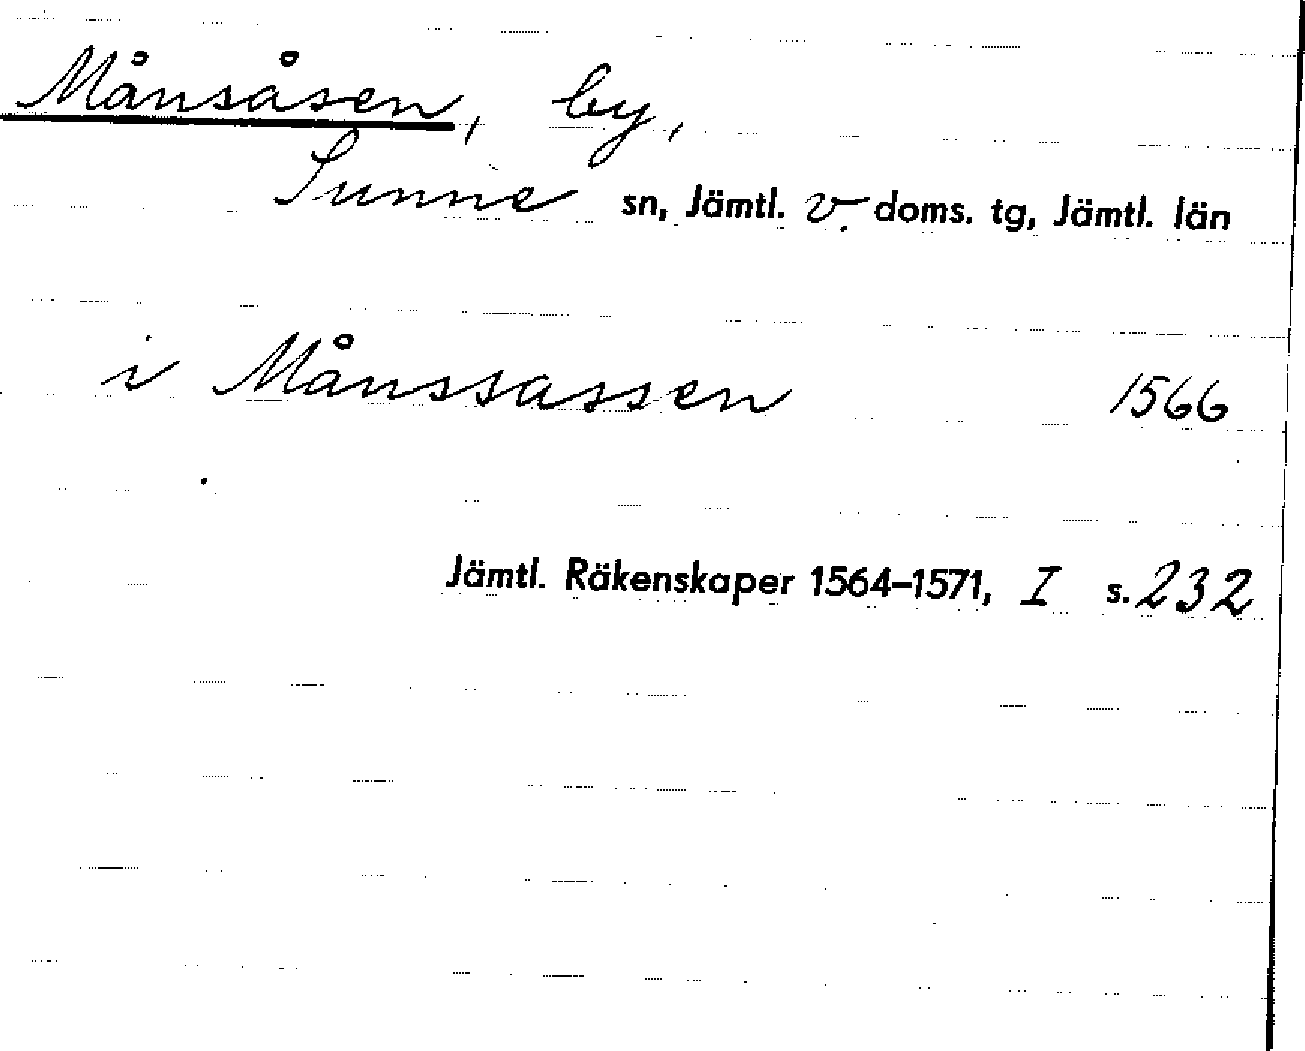 Månsåsen, by,
Sunne sn, Jämtl. v. doms. tg, Jämtl. län
i Månssassen 1566
Jämtl. Räkenskaper 1564–1571, I s. 232